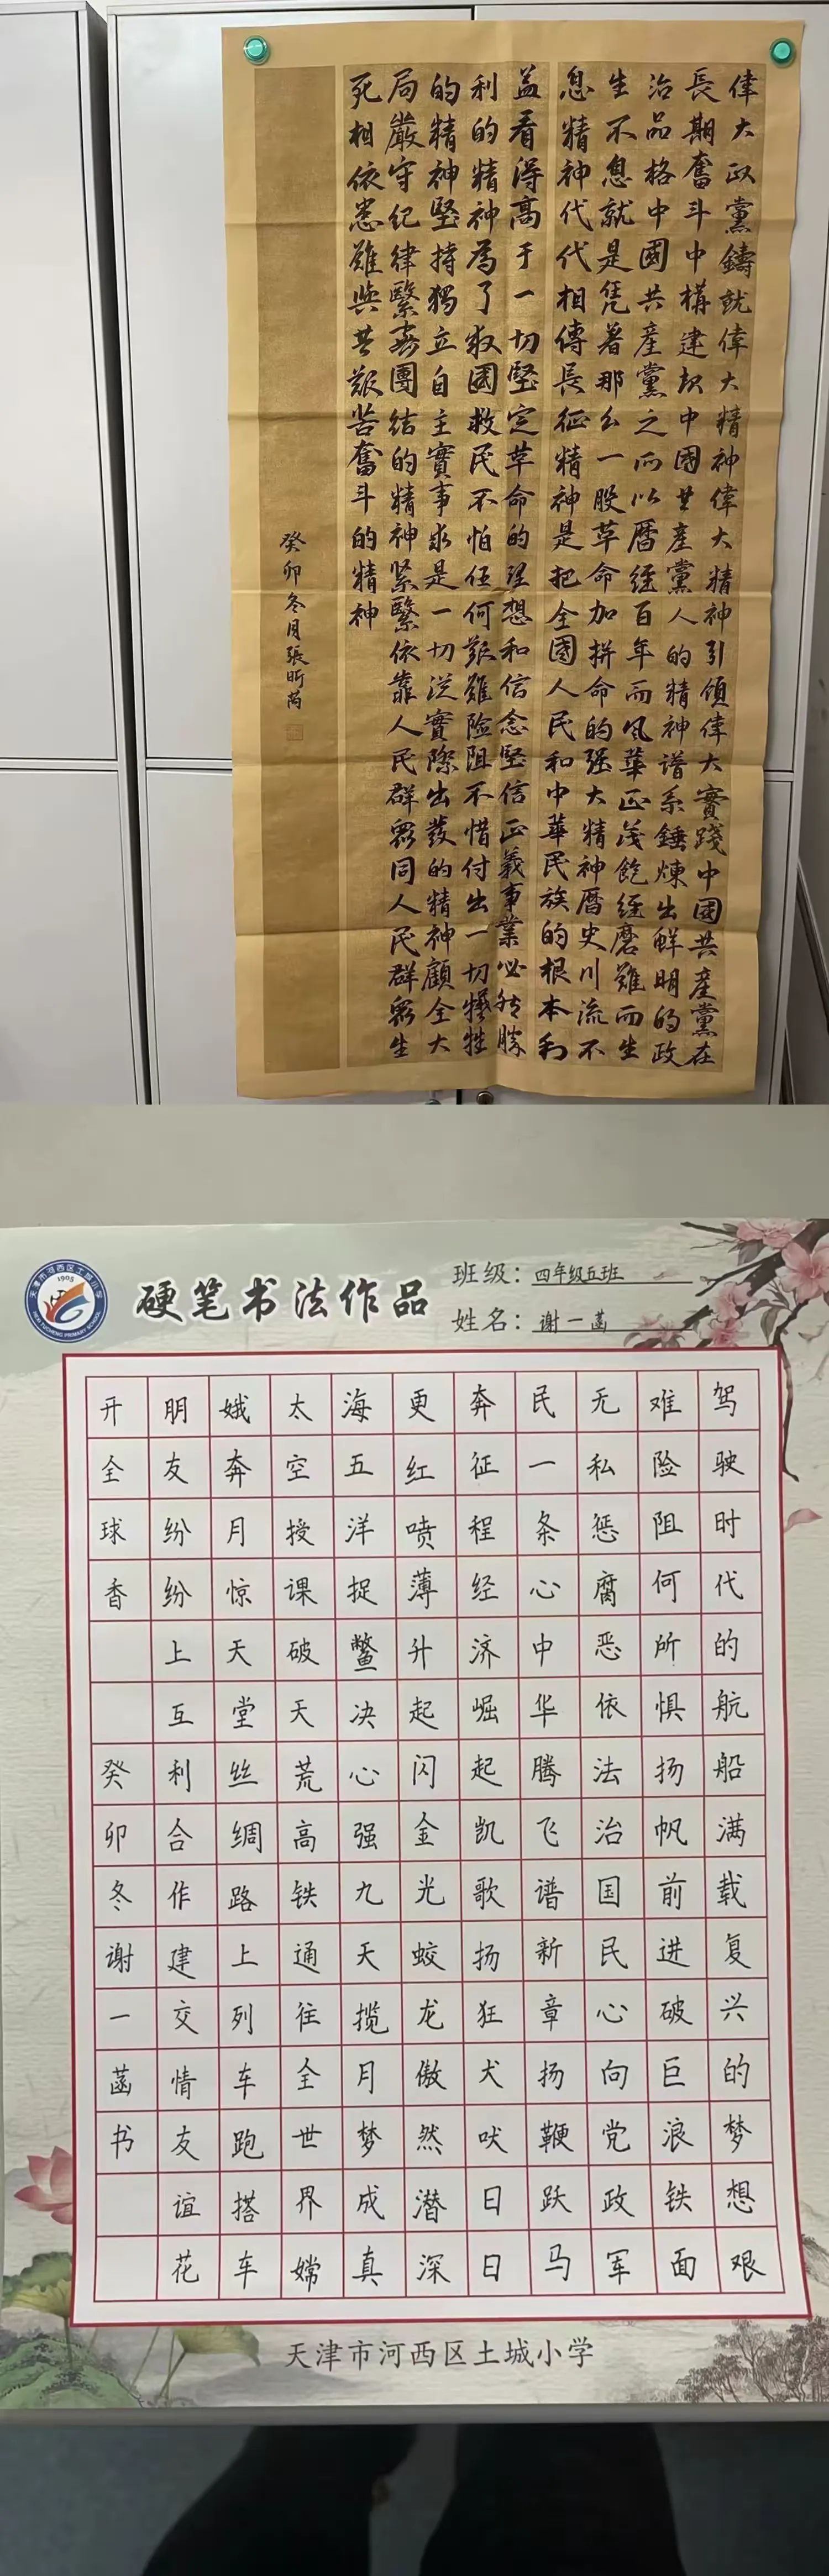 偉大政黨鑄就偉大精神偉大精神引領偉大實踐中國共產黨在
長期奮斗中構建起中國共產黨人的精神谱系錘煉出鮮明的政
治品格中國共產黨之所以曆經百年而风華正茂飽經磨難而生
生不息就是凭着那么一股革命加拼命的强大精神曆史川流不
息精神代代相傳長征精神是把全國人民和中華民族的根本利
益看得高于一切堅定革命的理想和信念堅信正義事業必然勝
利的精神為了救國救民不怕任何艱難险阻不惜付出一切犧牲
的精神堅持獨立自主實事求是一切從實際出發的精神顧全大
局嚴守纪律緊密團結的精神紧緊依靠人民群眾同人民群眾生
死相依患難與共艱苦奮斗的精神
癸卯冬月張昕芮
天津市河西区土城小学
1905
HEXI TUCHENG PRIMARY SCHOOL
硬笔书法作品
班级：四年级五班
姓名：谢一菡
驾驶时代的航船满载复兴的梦想艰
难险阻何所惧扬帆前进破巨浪铁面
无私惩腐恶依法治国民心向党政军
民一条心中华腾飞谱新章扬鞭跃马
奔征程经济崛起凯歌扬狂犬吠日日
更红喷薄升起闪金光蛟龙傲然潜深
海五洋捉鳖决心强九天揽月梦成真
太空授课破天荒高铁通往全世界嫦
娥奔月惊天堂丝绸路上列车跑搭车
朋友纷纷上互利合作建交情友谊花
开全球香 癸卯冬谢一菡书
天津市河西区土城小学